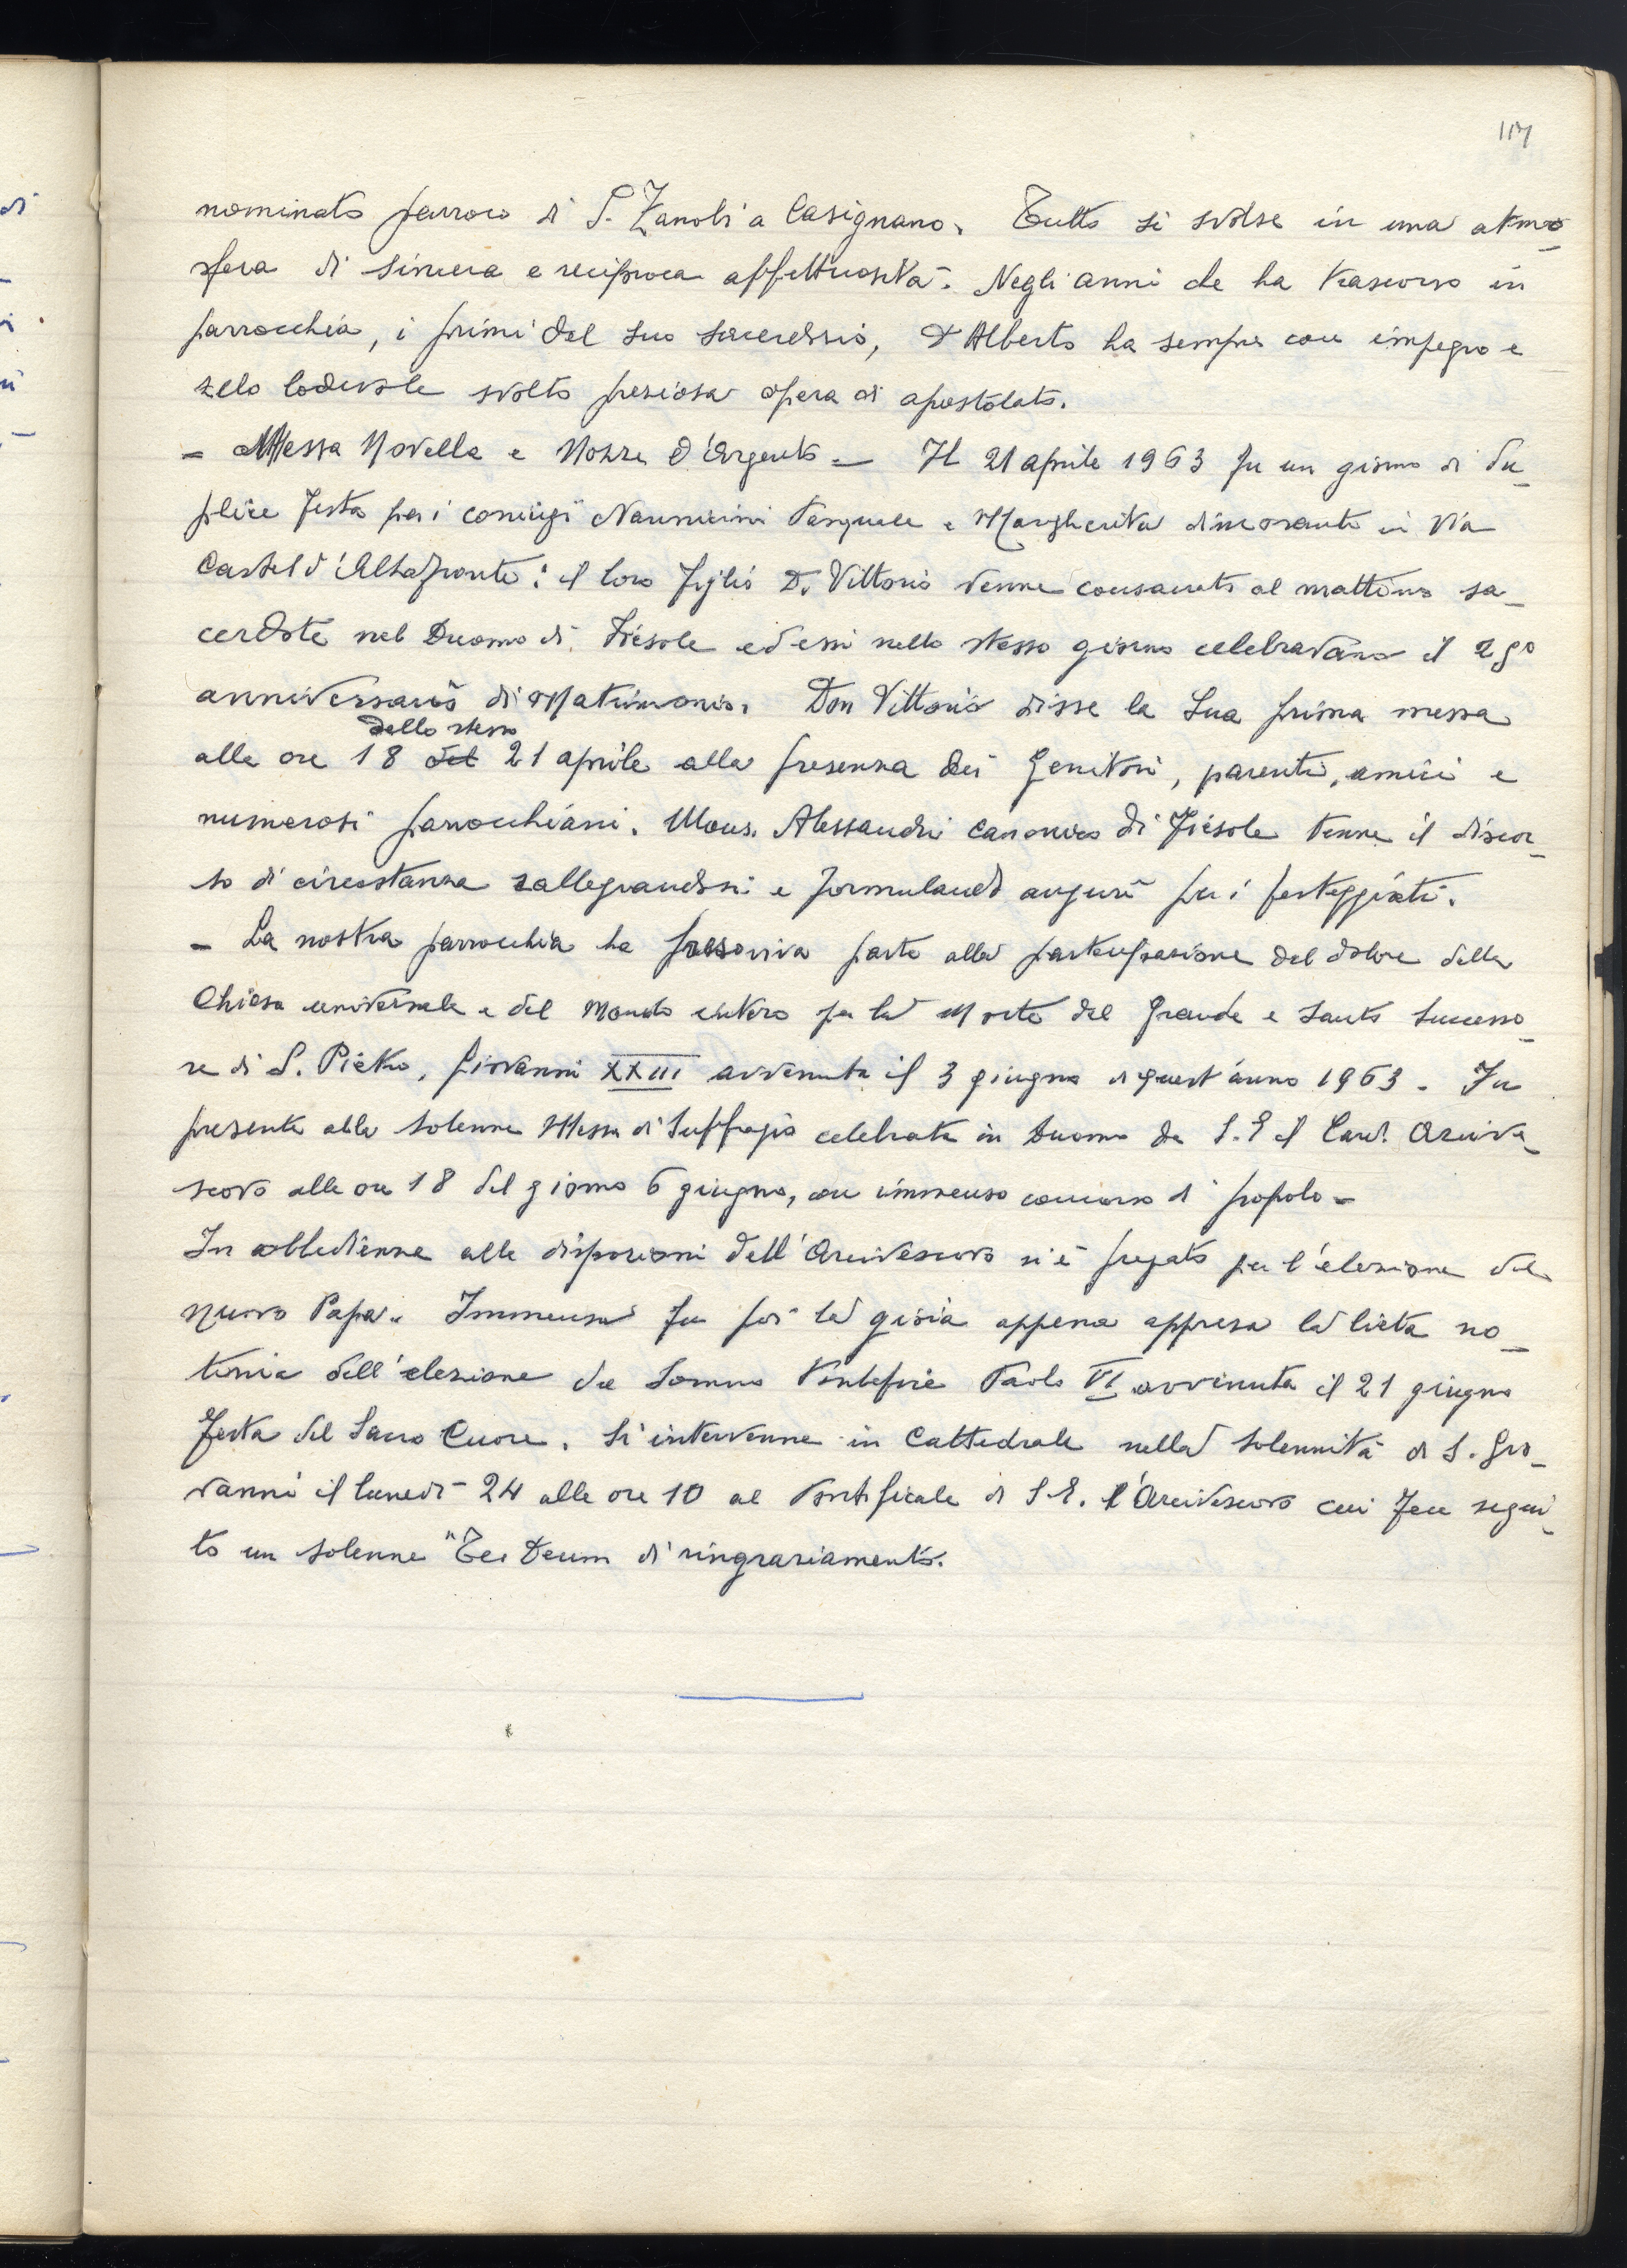 117
nominato parroco di S. Zanobi a Casignano. Tutto si svolse in una atmo-
sfera di sincera e reciproca affettuosità. Negli anni che ha trascorso in
parrocchia, i primi del suo sacerdozio, D Alberto ha sempre con impegno e
zelo lodevole svolto preziosa opera di apostolato.
- Messa Novella e Nozze d'Argento - Il 21 aprile 1963 fu un giorno di du-
plice festa per i coniugi Pasquale e Margherita dimoranti in Via
Castel d'Altafronte: il loro figlio D. Vittorio venne consacrato al mattino sa-
cerdote nel Duomo di Fiesole ed essi nello stesso giorno celebravano il 25º
anniversario di Matrimonio. Don Vittorio disse la Sua prima messa
dello stesso
alle ore 18 del 21 aprile alla presenza dei Genitori, parenti, amici e
numerosi parrocchiani. Mons. Alessandri canonico di Fiesole tenne il discor-
so di circostanza rallegrandosi e formulando auguri per i festeggiati.
- La nostra parrocchia ha preso viva parte alla partecipazione del dolore della
Chiesa universale e del Mondo intero per la Morte del Grande e Santo Successo-
re di S. Pietro, Giovanni XXIII avvenuta il 3 giugno di quest'anno 1963. Fu
presente alla solenne Messa di Suffragio celebrata in Duomo da S. E il Card. Arcive-
scovo alle ore 18 del giorno 6 giugno, con immenso concorso di popolo -
In obbedienza alle disposizioni dell'Arcivescovo si è pregato per l'elezione del
nuovo Papa. Immensa fu poi la gioia appena appresa la lieta no-
tizia dell'elezione del Sommo Pontefice Paolo VI avvenuta il 21 giugno
festa del Sacro Cuore. Si intervenne in Cattedrale nella Solennità di S. Gio-
vanni il lunedì 24 alle ore 10 al Pontificale di S. E. l'Arcivescovo cui fece segui-
to un solenne "Te Deum di ringraziamento.